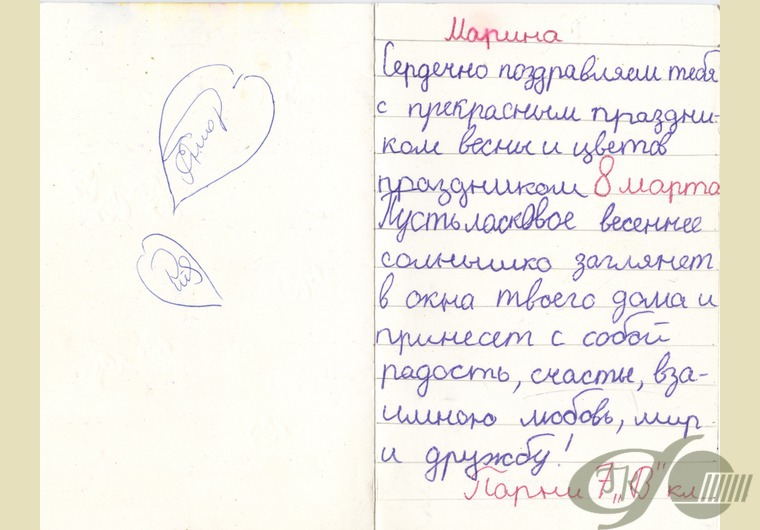 Марина
Сердечно поздравляем тебя
с прекрасным праздни-
ком весны и цветов
праздником 8 марта
Пусть ласковое весеннее
солнышко заглянет
в окна твоего дома и
принесет с собой
радость, счастье, вза-
имною любовь, мир
и дружбу!
Парни 7 „В" кл